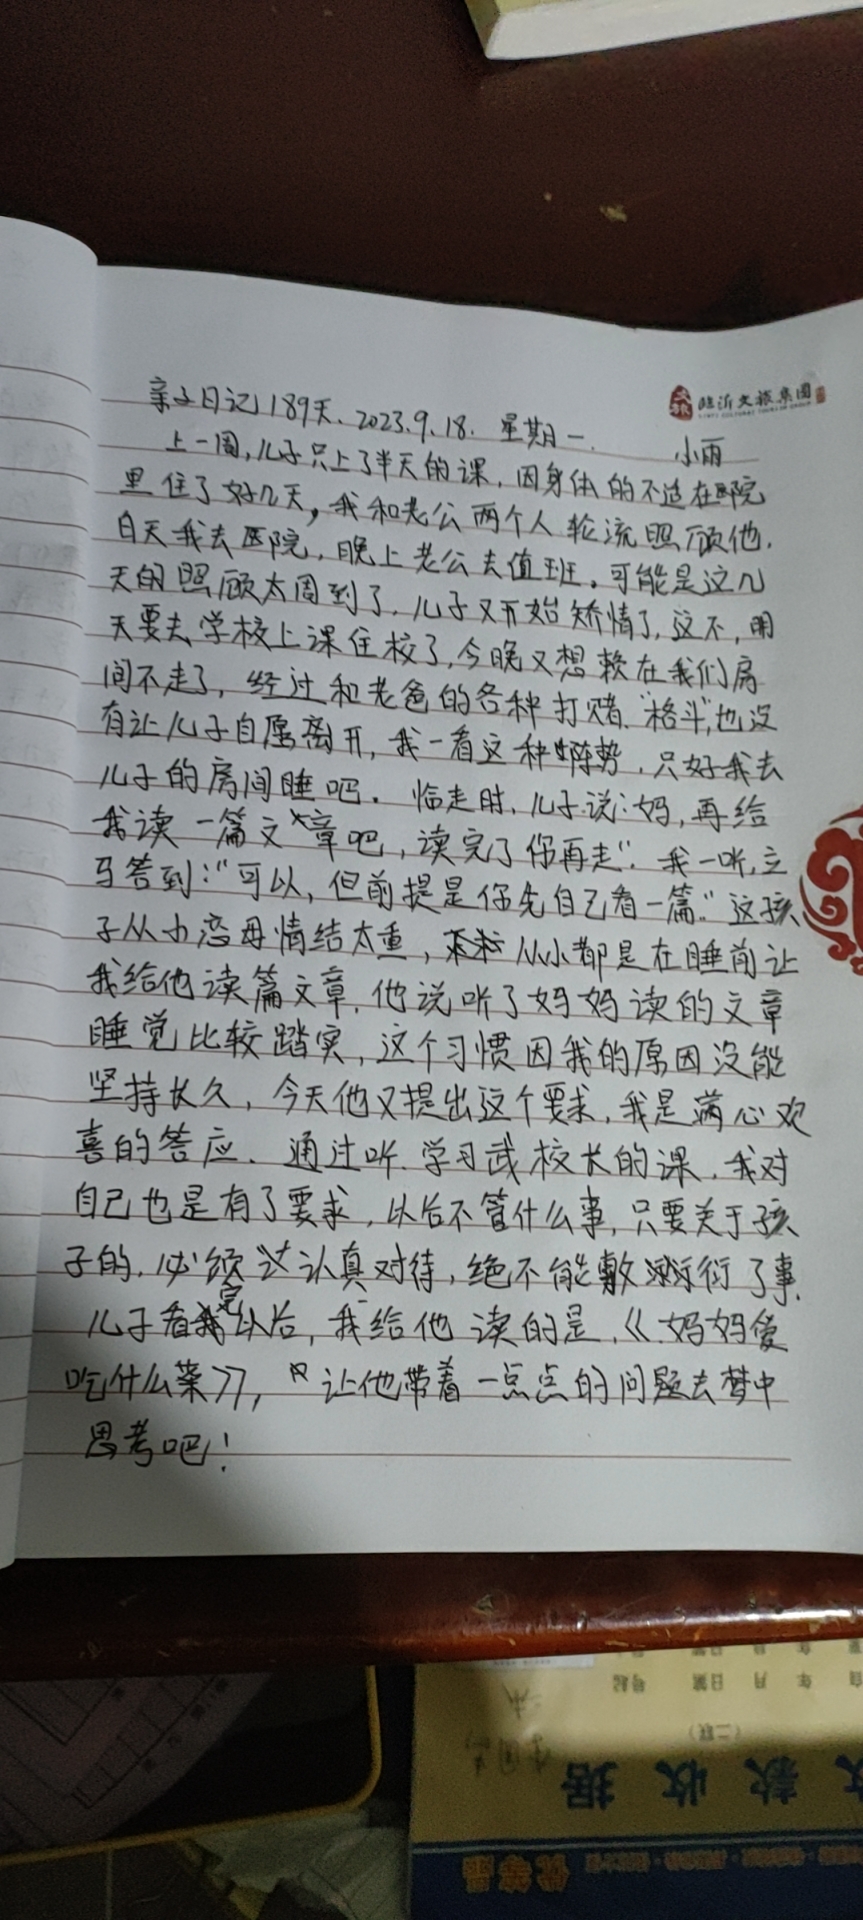 临沂文旅集团
亲子日记189天.2023.9.18.星期一.
小雨
上一周,儿子只上了半天的课,因身体的不适在医院
里住了好几天,我和老公两个人轮流照顾他.
白天我去医院,晚上老公去值班。可能是这几
天的照顾太周到了,儿子又开始矫情了,这不,明
天要去学校上课住校了,今晚又想赖在我们房
间不走了,经过和老爸的各种打赌."格斗",也没
有让儿子自愿离开,我一看这种阵势,只好我去
儿子的房间睡吧.临走时,儿子说:妈,再给
我读一篇文章吧,读完了你再走".我一听,立
马答到:"可以,但前提是你先自己看一篇."这孩
子从小恋母情结太重,从小都是在睡前让
我给他读篇文章,他说听了妈妈读的文章
睡觉比较踏实,这个习惯因我的原因没能
坚持长久,今天他又提出这个要求,我是满心欢
喜的答应.通过听.学习武校长的课,我对
自己也是有了要求,以后不管什么事,只要关于孩
子的,必须认真对待,绝不能敷衍了事.
儿子看完以后,我给他读的是,《妈妈爱
吃什么菜》,让他带着一点点的问题去梦中
思考吧!
(二联)
收款收据
优等品